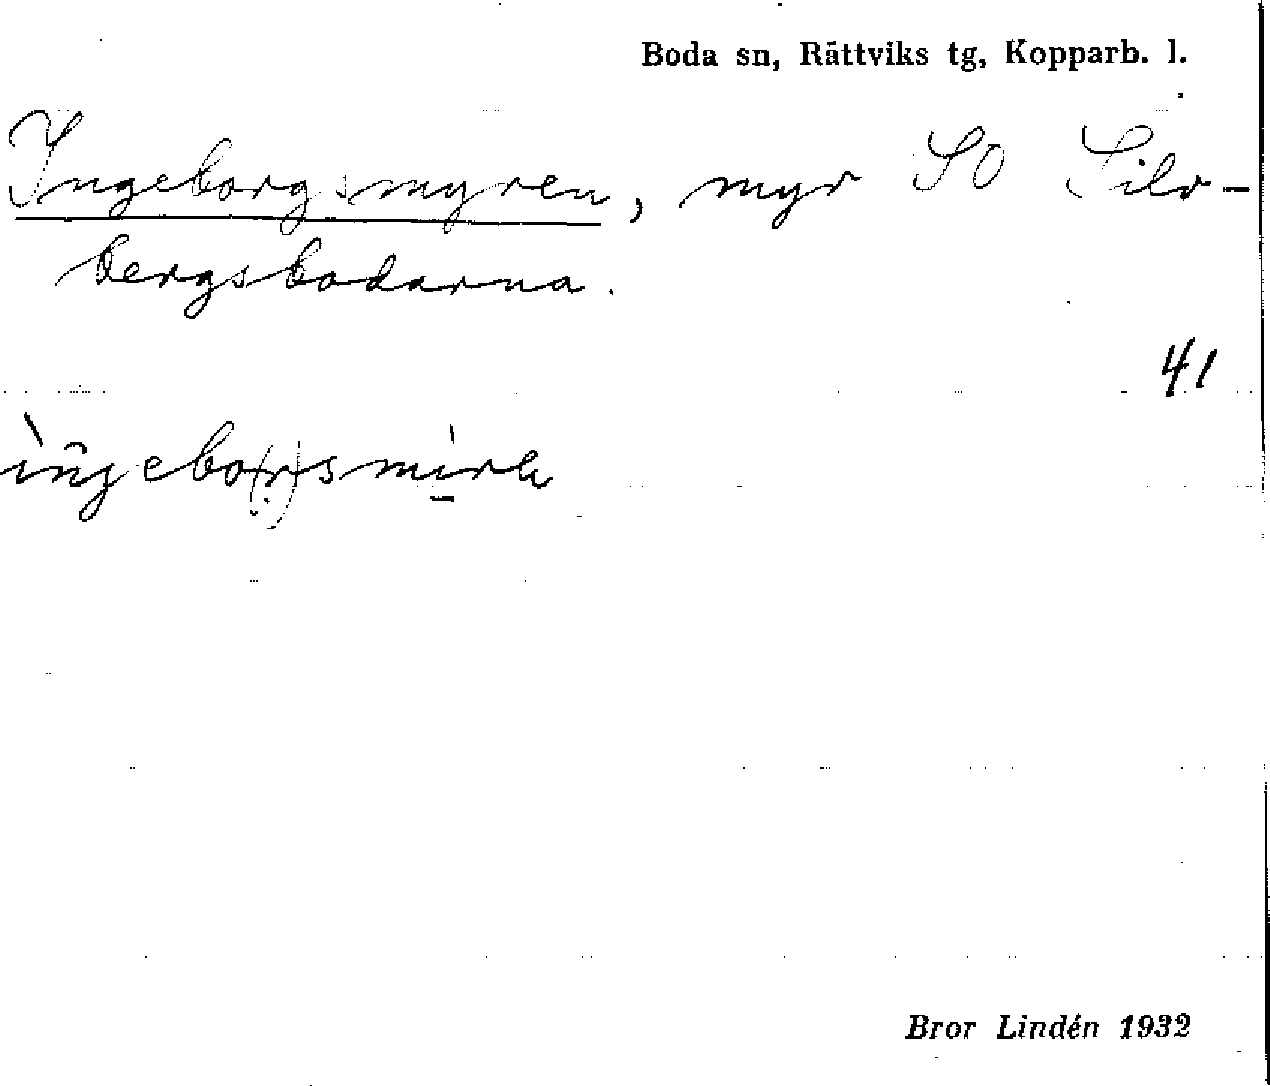 Boda sn, Rättviks tg, Kopparb. l.
Ingeborgsmyren, myr SO Silv-
bergsbodarna.
41
Bror Lindén 1932